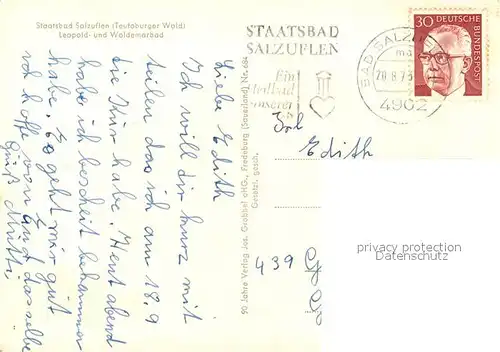 Staatsbad Salzuflen (Teutoburger Wald)
Leopold- und Waldemarbad
STAATSBAD
SALZUFLEN
Ein
Heilbad
unserer
30 DEUTSCHE
BUNDESPOST
BAD SALZU
20.8.73
4902
Liebe Edith
Ich will dir kurz mit
teilen das ich am 18.9
die Kur habe. Heut abend
habe ich bescheit bekommen
habe. Es geht mir gut
ich hoffe von Euch dasselbe
Gruß Mutti
90 Jahre Verlag Jos. Grobbel oHG., Fredeburg (Sauerland) Nr. 684
Gesetzl. gesch.
Frl
Edith
439 G
privacy protection
watermark